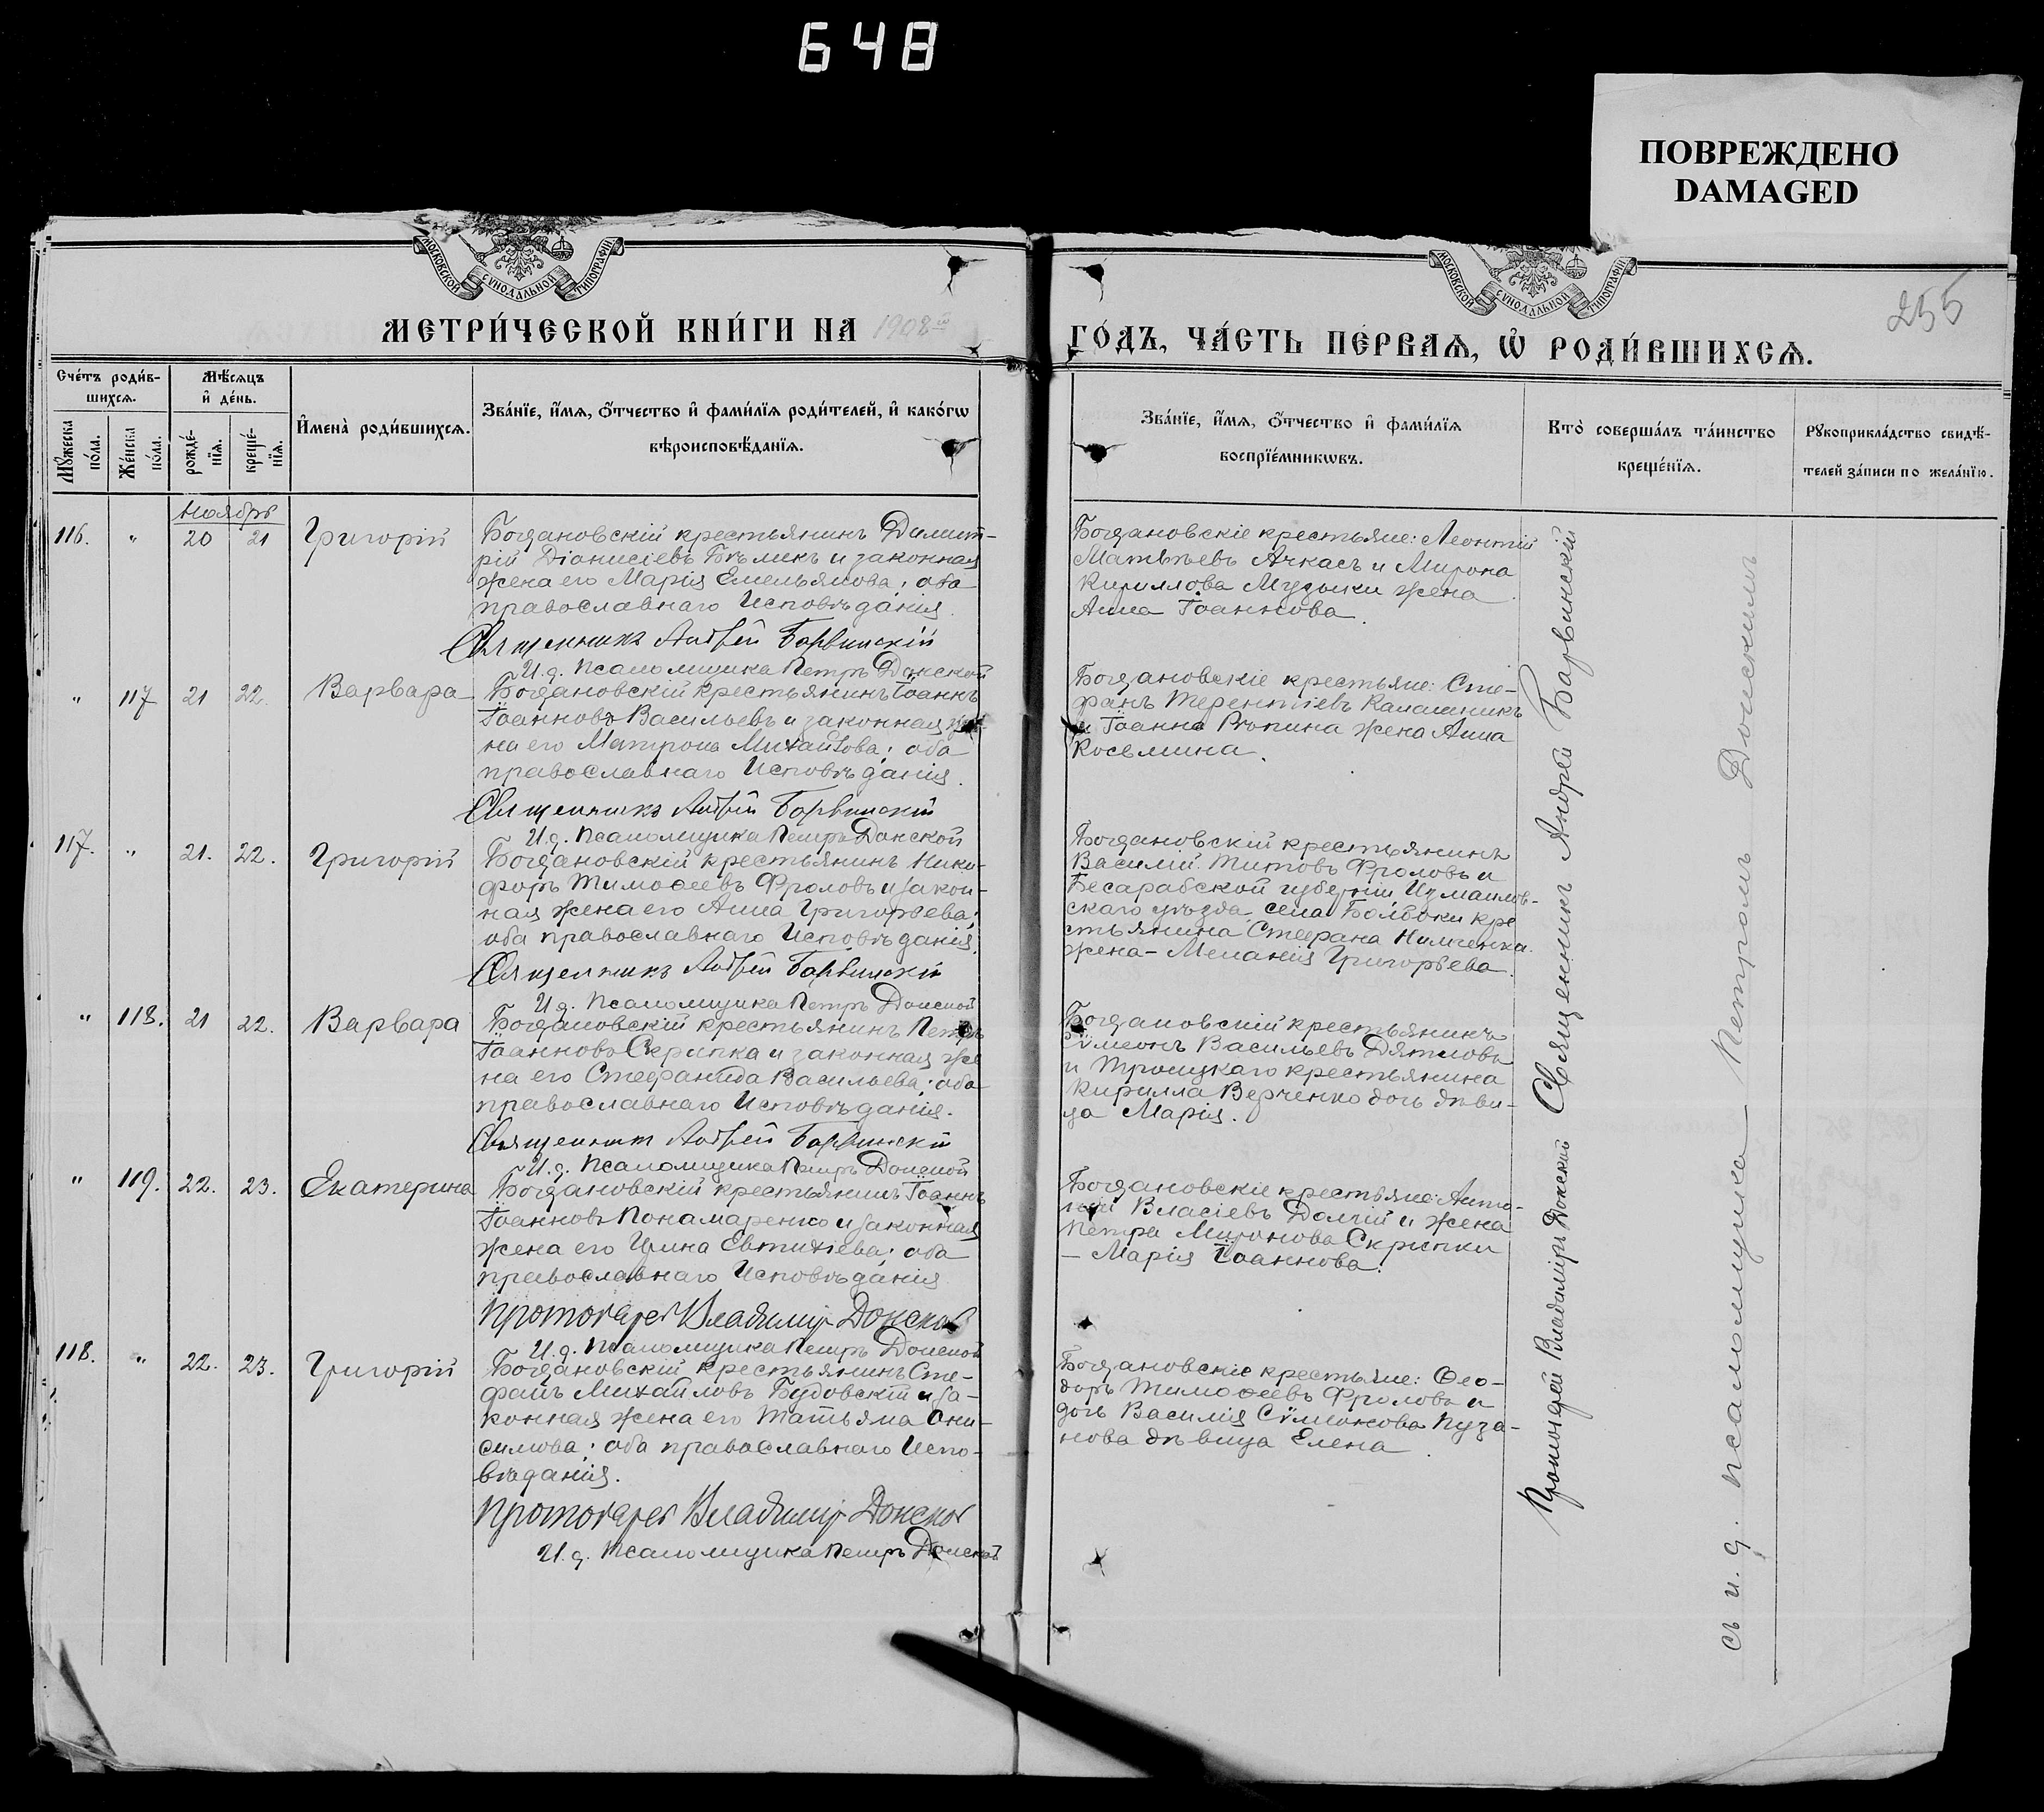 648
ПОВРЕЖДЕНО
DAMAGED
МОСКОВСКОЙ СѴНОДАЛЬНОЙ ТИПОГРАФІИ
МОСКОВСКОЙ СѴНОДАЛЬНОЙ ТИПОГРАФІИ
255
МЕТРИ́ЧЕСКОЙ КНИ́ГИ НА 1908й
ГО́ДЪ, ЧА́СТЬ ПЕ́РВАѦ, Ѡ҆ РОДИ́ВШИХСѦ.
Сче́тъ роди́в-
шихсѧ.
Мꙋ́жеска по́ла.
Же́нска по́ла.
Мѣ́сѧцъ
и҆ де́нь.
рожде́-
нїѧ.
креще́-
нїѧ.
И҆мена̀ роди́вшихсѧ.
Зва́нїе, и҆́мѧ, ѻ҆́тчество и҆ фами́лїѧ роди́телей, и҆ како́гѡ
вѣроисповѣ́данїѧ.
Зва́нїе, и҆́мѧ, ѻ҆́тчество и҆ фами́лїѧ
воспрїе́мникѡвъ.
Кто̀ соверша́лъ та́инство
креще́нїѧ.
Рꙋкоприкла́дство свидѣ́-
телей за́писи по жела́нїю.
Ноябрь
116. " 20 21 Григорій
Богдановскій крестьянинъ Димит-
рій Діонисіевъ Бѣликъ и законная
жена его Марія Емельянова; оба
православнаго Исповѣданія.
Священникъ Андрей Барвинскій
И.д. Псаломщика Петръ Донской
Богдановскіе крестьяне: Леонтій
Матѣевъ Ачкасъ и Мирона
Кириллова Музыки жена
Анна Іоаннова.
" 117 21 22. Варвара
Богдановскій крестьянинъ Іоаннъ
Іоанновъ Васильевъ и законная же-
на его Матрона Михайлова; оба
православнаго Исповѣданія.
Священникъ Андрей Барвинскій
И.д. Псаломщика Петръ Донской
Богдановскіе крестьяне: Сте-
фанъ Терентіевъ Калашникъ
и Іоанна Рѣпина жена Анна
Косьмина.
117. " 21. 22. Григорій
Богдановскій крестьянинъ Ники-
форъ Тимоѳеевъ Фроловъ и закон-
ная жена его Анна Григорьева;
оба православнаго Исповѣданія.
Священникъ Андрей Барвинскій
И.д. Псаломщика Петръ Донской
Богдановскій крестьянинъ
Василій Титовъ Фроловъ и
Бесарабской губерніи Измаилов-
скаго уѣзда, села Болбоки кре
стьянина Стефана Нимченка
жена – Меланія Григорьева.
" 118. 21 22. Варвара
Богдановскій крестьянинъ Петръ
Іоанновъ Скрипка и законная же
на его Стефанида Васильева; оба
православнаго Исповѣданія.
Священникъ Андрей Барвинскій
И.д. Псаломщика Петръ Донской
Богдановскій крестьянинъ
Сѵмеонъ Васильевъ Дятловъ
и Троицкаго крестьянина
Кирилла Верченко дочь дѣви-
ца Марія.
" 119. 22. 23. Екатерина
Богдановскій крестьянинъ Іоаннъ
Іоанновъ Пономаренко и законная
жена его Ирина Евтихіева; оба
православнаго Исповѣданія
Протоіерей Владиміръ Донской
И.д. Псаломщика Петръ Донской
Богдановскіе крестьяне: Анто-
ній Власіевъ Долгій и жена
Петра Миронова Скрипки
– Марія Іоаннова.
118. " 22. 23. Григорій
Богдановскій крестьянинъ Сте-
фанъ Михайловъ Будовскій и за-
конная жена его Татьяна Они-
симова; оба православнаго Испо-
вѣданія.
Протоіерей Владиміръ Донской
И.д. Псаломщика Петръ Донской
Богдановскіе крестьяне: Ѳео-
доръ Тимоѳеевъ Фроловъ и
дочь Василія Сѵмеонова Пуза-
нова дѣвица Елена.
Протоіерей Владиміръ Донской Священникъ Андрей Барвинскій
съ и. д. псаломщика Петромъ Донскимъ